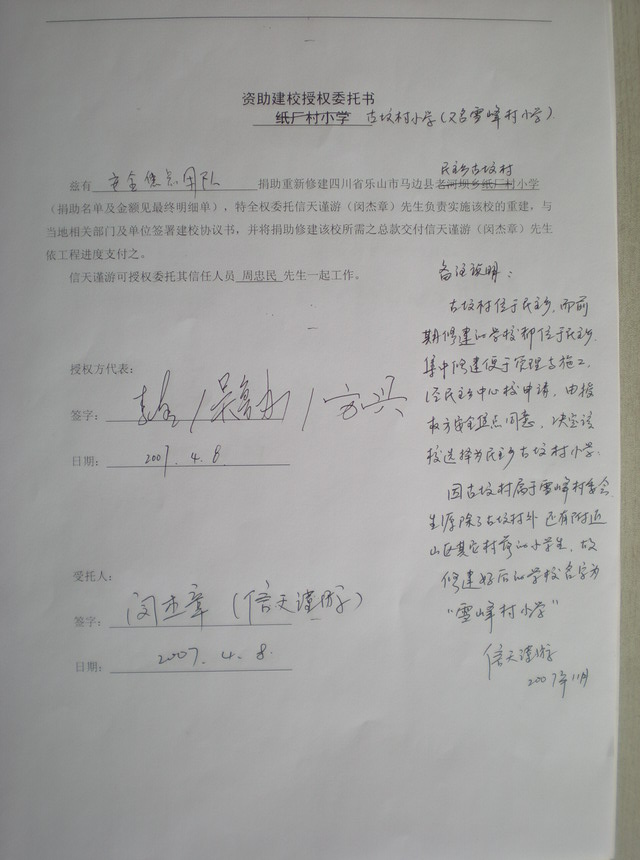 资助建校授权委托书
纸厂村小学 古坟村小学(又名雪峰村小学)
民主乡古坟村
兹有 安全焦点团队 捐助重新修建四川省乐山市马边县老河坝乡纸厂村小学
(捐助名单及金额见最终明细单),特全权委托信天谨游(闵杰章)先生负责实施该校的重建,与
当地相关部门及单位签署建校协议书,并将捐助修建该校所需之总款交付信天谨游(闵杰章)先生
依工程进度支付之。
信天谨游可授权委托其信任人员 周忠民 先生一起工作。
备注说明:
古坟村位于民主乡,而前
期修建的学校都位于民主乡
集中修建便于管理与施工
经民主乡中心校申请,由授
权方安全焦点同意,决定该
校选择为民主乡古坟村小学.
因古坟村属于雪峰村委会
生源除了古坟村外还有附近
山区其它村落的小学生,故
修建好后的学校名字为
“雪峰村小学”
信天谨游
2007年11月
授权方代表:
签字:
日期: 2007.4.8.
受托人:
签字: 闵杰章(信天谨游)
日期: 2007.4.8.